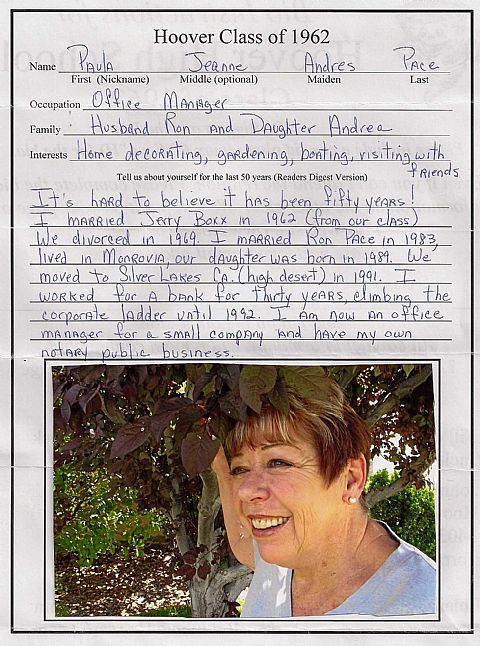 Hoover Class of 1962
Name Paula Jeanne Andres Pace
First (Nickname) Middle (optional) Maiden Last
Occupation Office Manager
Family Husband Ron and Daughter Andrea
Interests Home decorating, gardening, boating, visiting with friends
Tell us about yourself for the last 50 years (Readers Digest Version)
It's hard to believe it has been fifty years!
I married Jerry Boxx in 1962 (from our class)
We divorced in 1969. I married Ron Pace in 1983,
lived in Monrovia, our daughter was born in 1984. We
moved to Silver Lakes Ca. (high desert) in 1991. I
worked for a bank for thirty years, climbing the
corporate ladder until 1992. I am now an office
manager for a small company and have my own
notary public business.